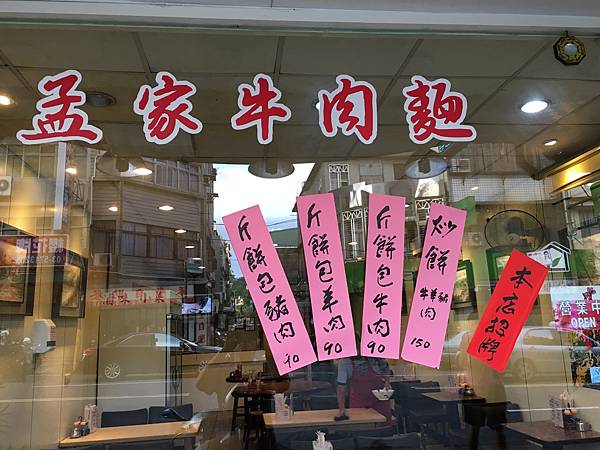 孟家牛肉麵
斤餅包豬肉 90
斤餅包羊肉 90
斤餅包牛肉 90
炒餅 牛羊豬肉 150
本店招牌
營業中
OPEN